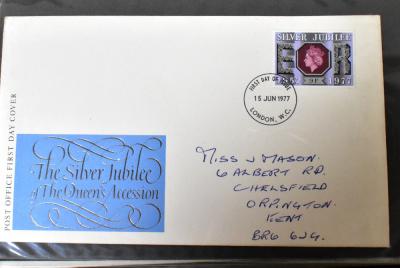 SILVER JUBILEE
E R
1952 1977
9P
FIRST DAY OF ISSUE
15 JUN 1977
LONDON, W.C.
POST OFFICE FIRST DAY COVER
The Silver Jubilee
of The Queen's Accession
MISS J MASON.
6 ALBERT RD.
CHELSFIELD
ORPINGTON.
KENT
BR6 6JG.